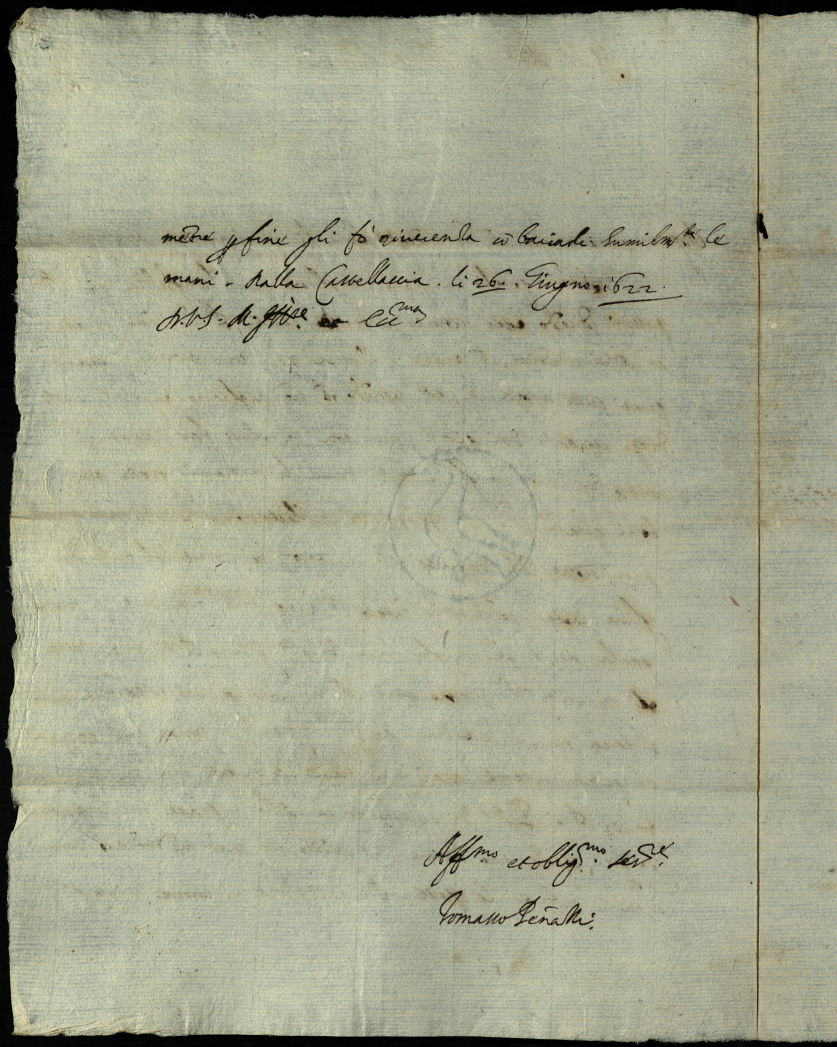 mētre p fine gli fò riuerenza cō baciarli humilm.te le
mani. Dalla Castellaccia. li 26. Giugno 1622.
D. V. S. M. Ill.re et Ecc.ma
Aff.mo et oblig.mo ser.re
Tomasso